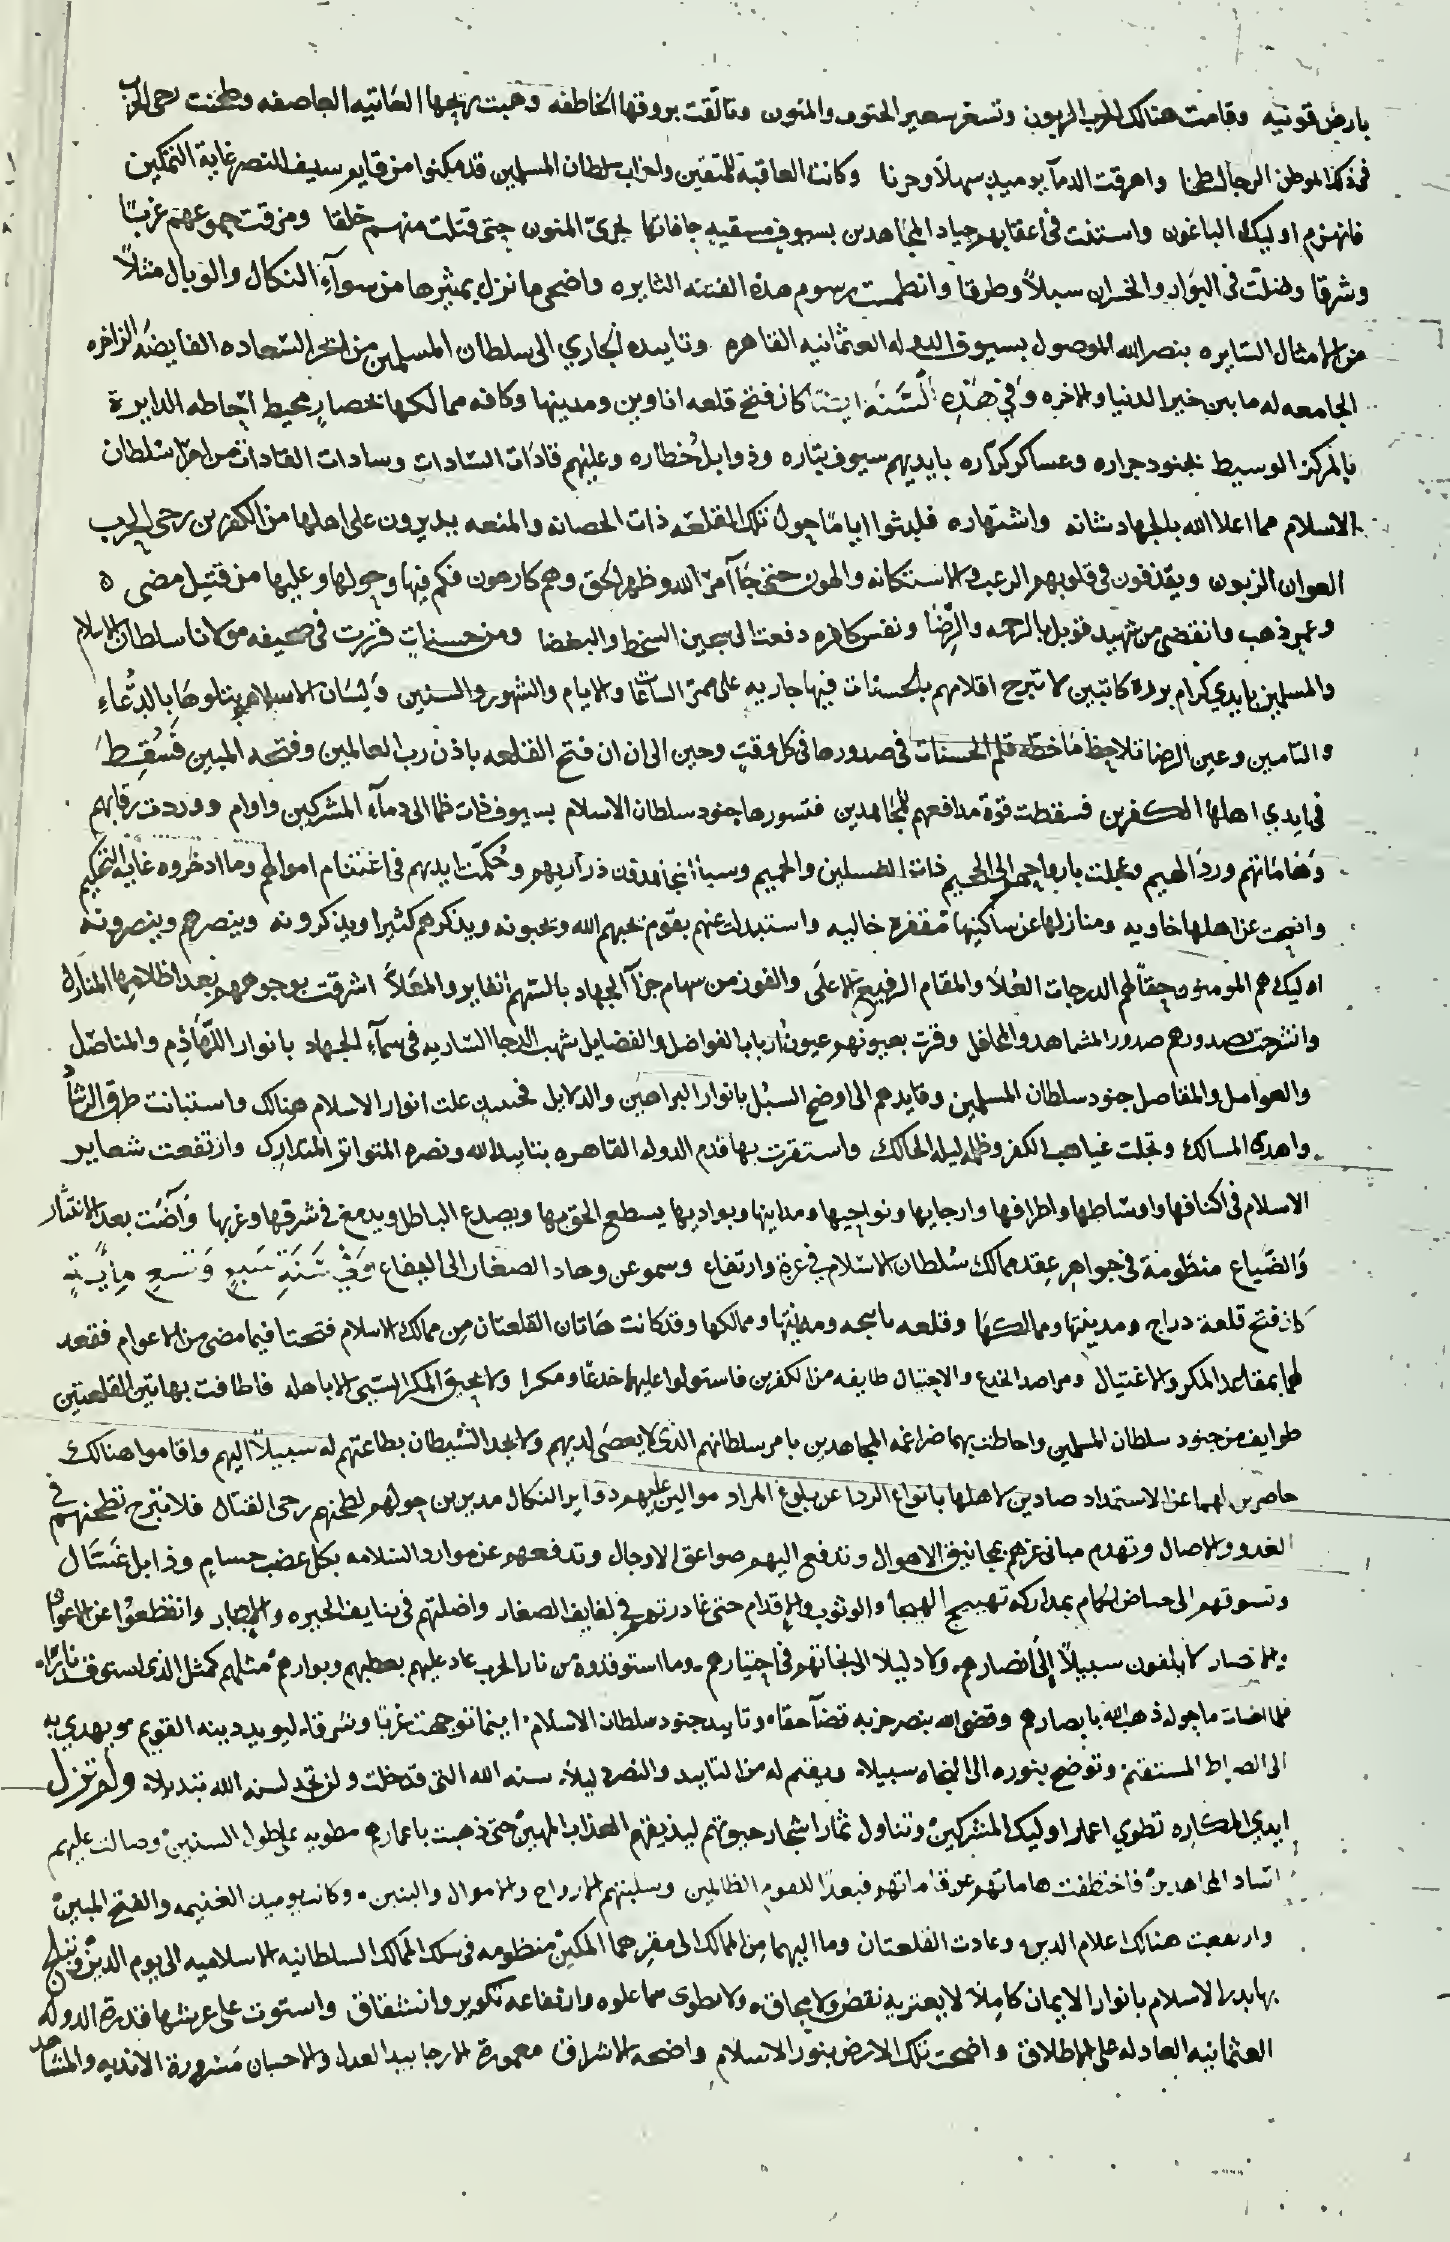 بارض قونيه وقامت هنالك الحرب الزبون وتسعر سعير الحتوف والمنون وتالقت بروقها الخاطفه وهبت ريحها العاتيه العاصفه وطحنت رحى الحرب
في ذلك الموطن الرجال طحنا واهرقت الدمآ يوميذ سهلا وحزنا وكانت العاقبة للمتقين واحزاب سلطان المسلمين قد مكنوا من قايم سيف النصر غاية التمكين
فانهزم اوليك الباغون واستنت في اعقابهم جياد المجاهدين بسيوف مسقيه حافاتها لجرى المنون حتى قتلت منهم خلقا ومزقت جموعهم غربا
وشرقا وضلت في البوار والخسران سبلا وطرقا وانطمست رسوم هذه الفتنه الثايره واضحى ما نزل بمثيرها من سوآء النكال والوبال مثلا
من الامثال السايره بنصر الله الموصول بسيوف الدوله العثمانيه القاهره وتاييده الجاري الى سلطان المسلمين من ابحر السعاده الفايضه الزاخره
الجامعه له ما بين خير الدنيا والاخره وفي هذه السنه ايضا كان فتح قلعه اناوين ومدينها وكافه ممالكها بحصار محيط احاطه الدايرة
بالمركز الوسيط بجنود جراره وعساكر كراره بايديهم سيوف بتاره وذوابل خطاره وعليهم قادات السادات وسادات القادات من امرا سلطان
الاسلام مما اعلا الله بالجهاد شانه واشتهاره فلبثوا اياما حول تلك القلعه ذات الحصانه والمنعه يديرون على اهلها من الكفرين رحى الحرب
العوان الزبون ويقذفون في قلوبهم الرعب والاستكانه والهون حتى جآ امر الله وظهر الحق وهم كارهون فكم فيها وحولها وعليها من قتيل مضى
وعمر ذهب وانقضى من شهيد قوبل بالرحمه والرضا ونفس كافره دفعت الى سجين السخط والبغضا ومن حسنات قررت في صحيفه مولانا سلطان الاسلام
والمسلمين بايدي كرام برره كاتبين لا تبرح اقلامهم بالحسنات فيها جاريه على ممر الساعات والايام والشهور والسنين ولسان الاسلام يتلوها بالدعاء
والتامين وعين الرضا تلاحظ ما خطه قلم الحسنات في صدورها في كل وقت وحين الى ان ان فتح القلعه باذن رب العالمين وفتحه المبين فسقط
في ايدي اهلها الكفرين فسقطت قوة مدافعهم للمجاهدين فتسورها جنود سلطان الاسلام بسيوف ذات ظما الى دمآء المشركين واوام ووردت رقابهم
وهاماتهم ورد الهيم وعجلت بارواحهم الى الجحيم ذات الغسلين والحميم وسبا المجاهدون ذراريهم وحكمت ايديهم في اغتنام اموالهم وما ادخروه غاية التحكيم
واضحت عن اهلها خاويه ومنازلها عن ساكنيها مقفره خاليه واستبدلت عنهم بقوم يحبهم الله ويحبونه ويذكرهم كثيرا ويذكرونه وينصرهم وينصرونه
اوليك هم المومنون حقا لهم الدرجات العلا والمقام الرفيع الاعلى والفوز من سهام جزآ الجهاد بالسهم الفايز والمعلا اشرقت بوجوههم بعد اظلامها المنازل
وانشرحت بصدورهم صدور المشاهد والمحافل وقرت بعيونهم عيون ارباب الفواضل والفضايل شهب الدجا الساريه في سمآء الجهاد بانوار اللهاذم والمناصل
والعوامل والمفاصل جنود سلطان المسلمين وقايدهم الى اوضح السبل بانوار البراهين والدلايل فحينيذ علت انوار الاسلام هنالك واستبانت طرق الرشاد
واهدى المسالك وتجلت غياهب الكفر وظلم ليله الحالك واستقرت بها قدم الدوله القاهره بتاييد الله ونصره المتواتر المتدارك وارتفعت شعاير
الاسلام في اكنافها واوساطها واطرافها وارجايها ونواحيها ومداينها وبواديها يسطع الحق بها ويصدع الباطل ويدمغ في شرقها وغربها وآضت بعد الانتثار
والضياع منظومة في جواهر عقد ممالك سلطان الاسلام في عزة وارتفاع وسمو عن وهاد الصغار الى اليفاع وفي سنة سبع وتسع مايه
كان فتح قلعة دراج ومدينتها وممالكها وقلعه ومدينتها وممالكها وقد كانت هاتان القلعتان من ممالك الاسلام فتحتا فيما مضى من الاعوام فقعد
لهما بمقاعد المكر والاغتيال ومراصد الخدع والاحتيال طايفه من الكفرين فاستولوا عليهما خدعا ومكرا ولا يحيق المكر السيي الا باهله فاطافت بهاتين القلعتين
طوايف من جنود سلطان المسلمين واحاطت بهما ضراغمه المجاهدين بامر سلطانهم الذي لا يعصى لديهم ولا يجد الشيطان بطاعتهم له سبيلا اليهم واقاموا هنالك
حاصرين لهما عن الاستمداد صادين لاهلها بانواع الردا عن بلوغ المراد موالين عليهم دواير النكال مديرين حولهم لطحنهم رحى القتال فلا تبرح تطحنهم في
الغدو والاصال وتهدم مباني عزهم بمجانيق الاهوال وتدفع اليهم صواعق الاوجال وتدفعهم عن موارد السلامه بكل عضب حسام وذابل عسال
وتسوقهم الى حياض الحمام بمداركه تهييج الهيجا والوثوب والاقدام حتى غادرتهم في لفايف الصغار واضلتهم في بنايف الحيره والابصار وانقطعوا عن الاعوان
والانصار لا يلفون سبيلا الى انصارهم ولا دليلا الى نجاتهم في اختيارهم وما استوقدوه من نار الحرب عاد عليهم بعطبهم وبوارهم مثلهم كمثل الذي استوقد نارا
فلما اضات ما حوله ذهب الله بابصارهم وقضى الله بنصر حزبه قضآ حقا وتاييد جنود سلطان الاسلام اينما توجهت غربا وشرقا ليويد دينه القويم ويهدي به
الى الصراط المستقيم وتوضح بنوره الى النجاه سبيلا ويقيم له من التاييد والنصر دليلا سنه الله التي قد خلت ولن تجد لسنه الله تبديلا ولم تزل
ايدي المكاره تطوي اعمار اوليك المشركين وتتناول ثمار اشجار حيوتهم ليذيقهم العذاب المهين حتى ذهبت باعمارهم مطويه على طول السنين وصالت عليهم
آساد المجاهدين فاختطفت هاماتهم عن قاماتهم فبعدا للقوم الظالمين وسلبتهم الارواح والاموال والبنين وكانت يوميذ الغنيمه والفتح المبين
وارتفعت هنالك اعلام الدين وعادت القلعتان وما اليهما من الممالك الى مقرهما المكين منظومه في سلك الممالك السلطانيه الاسلاميه الى يوم الدين
بها بدر الاسلام بانوار الايمان كاملا لا يعتريه نقص ولا محاق ولا يطوى سما علوه وارتفاعه تكوير وانشقاق واستوت على عرشها قدرة الدوله
العثمانيه العادله على الاطلاق واضحت تلك الارض بنور الاسلام واضحه الاشراق معمورة الارجا بيد العدل والاحسان الانديه والمشاهد